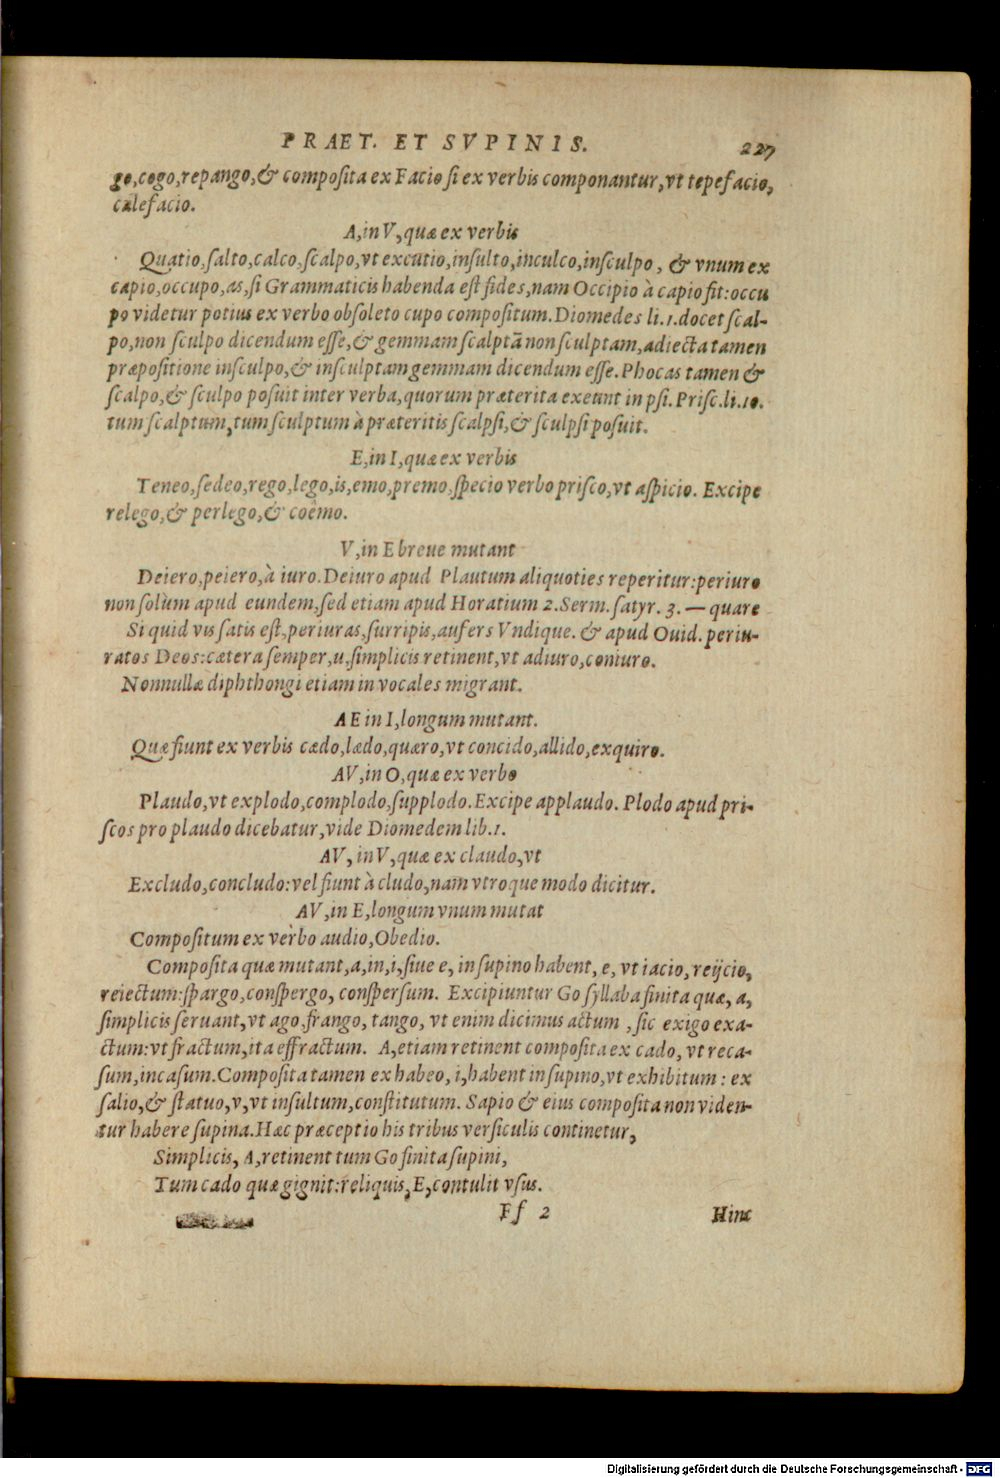 PRAET. ET SVPINIS. 227
go, cogo, repango, & composita ex Facio si ex verbis componantur, vt tepefacio,
calefacio.
A, in V, quæ ex verbis
Quatio, salto, calco, scalpo, vt excutio, insulto, inculco, insculpo, & vnum ex
capio, occupo, as, si Grammaticis habenda est fides, nam Occipio à capio fit: occu
po videtur potius ex verbo obsoleto cupo compositum. Diomedes li. 1. docet scal-
po, non sculpo dicendum esse, & gemmam scalptā non sculptam, adiecta tamen
præpositione insculpo, & insculptam gemmam dicendum esse. Phocas tamen &
scalpo, & sculpo posuit inter verba, quorum præterita exeunt in psi. Prisc. li. 10.
tum scalptum, tum sculptum à præteritis scalpsi, & sculpsi posuit.
E, in I, quæ ex verbis
Teneo, sedeo, rego, lego, is, emo, premo, specio verbo prisco, vt aspicio. Excipe
relego, & perlego, & coëmo.
V, in E breue mutant
Deiero, peiero, à iuro. Deiuro apud Plautum aliquoties reperitur: periuro
non solùm apud eundem, sed etiam apud Horatium 2. Serm. satyr. 3. — quare
Si quid vis satis est, periuras, surripis, aufers Vndique. & apud Ouid. periu-
ratos Deos: cætera semper, u, simplicis retinent, vt adiuro, coniuro.
Nonnullæ diphthongi etiam in vocales migrant.
AE in I, longum mutant.
Quæ fiunt ex verbis cædo, lædo, quæro, vt concido, allido, exquiro.
AV, in O, quæ ex verbo
Plaudo, vt explodo, complodo, supplodo. Excipe applaudo. Plodo apud pri-
scos pro plaudo dicebatur, vide Diomedem lib. 1.
AV, in V, quæ ex claudo, vt
Excludo, concludo: vel fiunt à cludo, nam vtroque modo dicitur.
AV, in E, longum vnum mutat
Compositum ex verbo audio, Obedio.
Composita quæ mutant, a, in, i, siue e, in supino habent, e, vt iacio, reijcio,
reiectum: spargo, conspergo, conspersum. Excipiuntur Go syllaba finita quæ, a,
simplicis seruant, vt ago, frango, tango, vt enim dicimus actum, sic exigo exa-
ctum: vt fractum, ita effractum. A, etiam retinent composita ex cado, vt reca-
sum, incasum. Composita tamen ex habeo, i, habent in supino, vt exhibitum: ex
salio, & statuo, v, vt insultum, constitutum. Sapio & eius composita non viden-
tur habere supina. Hæc præceptio his tribus versiculis continetur,
Simplicis, A, retinent tum Go finita supini,
Tum cado quæ gignit: reliquis, E, contulit vsus.
Ff 2 Hinc
Digitalisierung gefördert durch die Deutsche Forschungsgemeinschaft - DFG